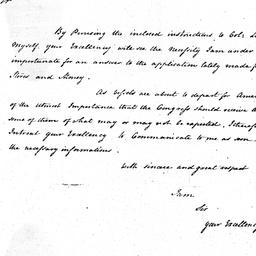 By Perusing the inclosed instructions to Colo. L
Myself, your Excellency will see the necessity I am under
importunate for an answer to the application lately made for
Stores and Money.
As Vessels are about to depart for Amer
of the utmost Importance that the Congress should receive
some of them of what may or may not be expected. I therefore
Intreat your Excellency to Communicate to me as soon
the necessary informations.
With sincere and great respect
I am
Sir
your Excellency